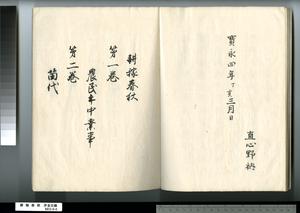 寳永四年丁亥三月日
直心野衲
耕稼春秋
第一巻
農民年中業事
第二巻
苗代